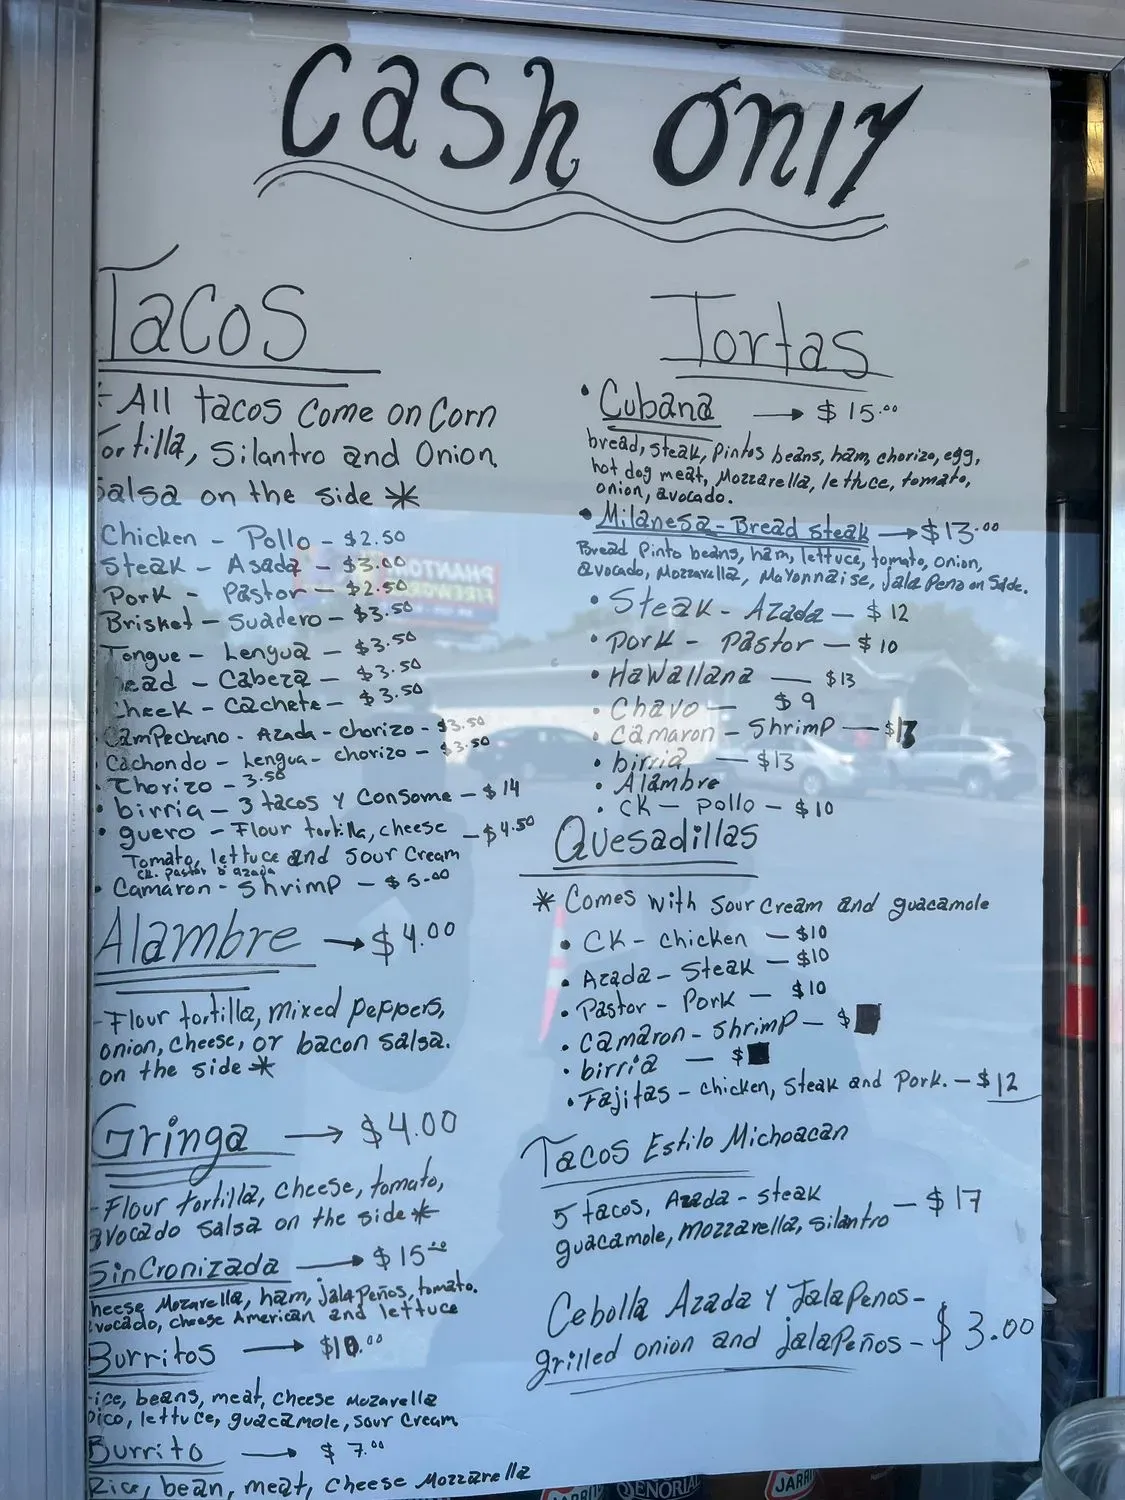 Cash Only
Tacos
* All tacos Come on Corn
Tortilla, Silantro and Onion
Salsa on the side *
Chicken - Pollo - $2.50
Steak - Asada - $3.00
Pork - Pastor - $2.50
Brisket - Suadero - $3.50
Tongue - Lengua - $3.50
Head - Cabeza - $3.50
Cheek - Cachete - $3.50
CamPechano - Azada - chorizo - $3.50
Cachondo - Lengua - chorizo - $3.50
Chorizo - 3.50
• birria - 3 tacos y Consome - $14
• guero - Flour tortilla, cheese - $4.50
Tomato, lettuce and Sour Cream
CK. Pastor o azada
• Camaron - Shrimp - $5.00
Alambre → $4.00
- Flour tortilla, mixed Peppers,
onion, cheese, or bacon salsa.
on the side *
Gringa → $4.00
- Flour tortilla, cheese, tomato,
avocado salsa on the side *
SinCronizada → $15.00
cheese Mozarella, ham, jalaPeños, tomato.
avocado, cheese American and lettuce
Burritos → $10.00
rice, beans, meat, cheese Mozarella
pico, lettuce, guacamole, sour Cream
Burrito → $7.00
Rice, bean, meat, cheese Mozzarella
Tortas
• Cubana → $15.00
bread, steak, Pintos beans, ham, chorizo, egg,
hot dog meat, Mozzarella, lettuce, tomato,
onion, avocado.
• Milanesa - Bread steak → $13.00
Bread Pinto beans, ham, lettuce, tomato, onion,
avocado, Mozzarella, Mayonnaise, jalapeno on Side.
• Steak - Azada - $12
• Pork - Pastor - $10
• Hawallana - $13
• Chavo - $9
• Camaron - Shrimp - $13
• birria - $13
• Alambre
• CK - Pollo - $10
Quesadillas
* Comes with sour cream and guacamole
• CK - chicken - $10
• Azada - Steak - $10
• Pastor - Pork - $10
• Camaron - Shrimp - $
• birria - $
• Fajitas - chicken, steak and Pork. - $12
Tacos Estilo Michoacan
5 tacos, Azada - steak - $17
guacamole, mozzarella, silantro
Cebolla Azada y JalaPenos -
grilled onion and jalaPeños - $3.00
PHANTOM
FIREWORKS
JARRI
SEÑORIAL
JARRI